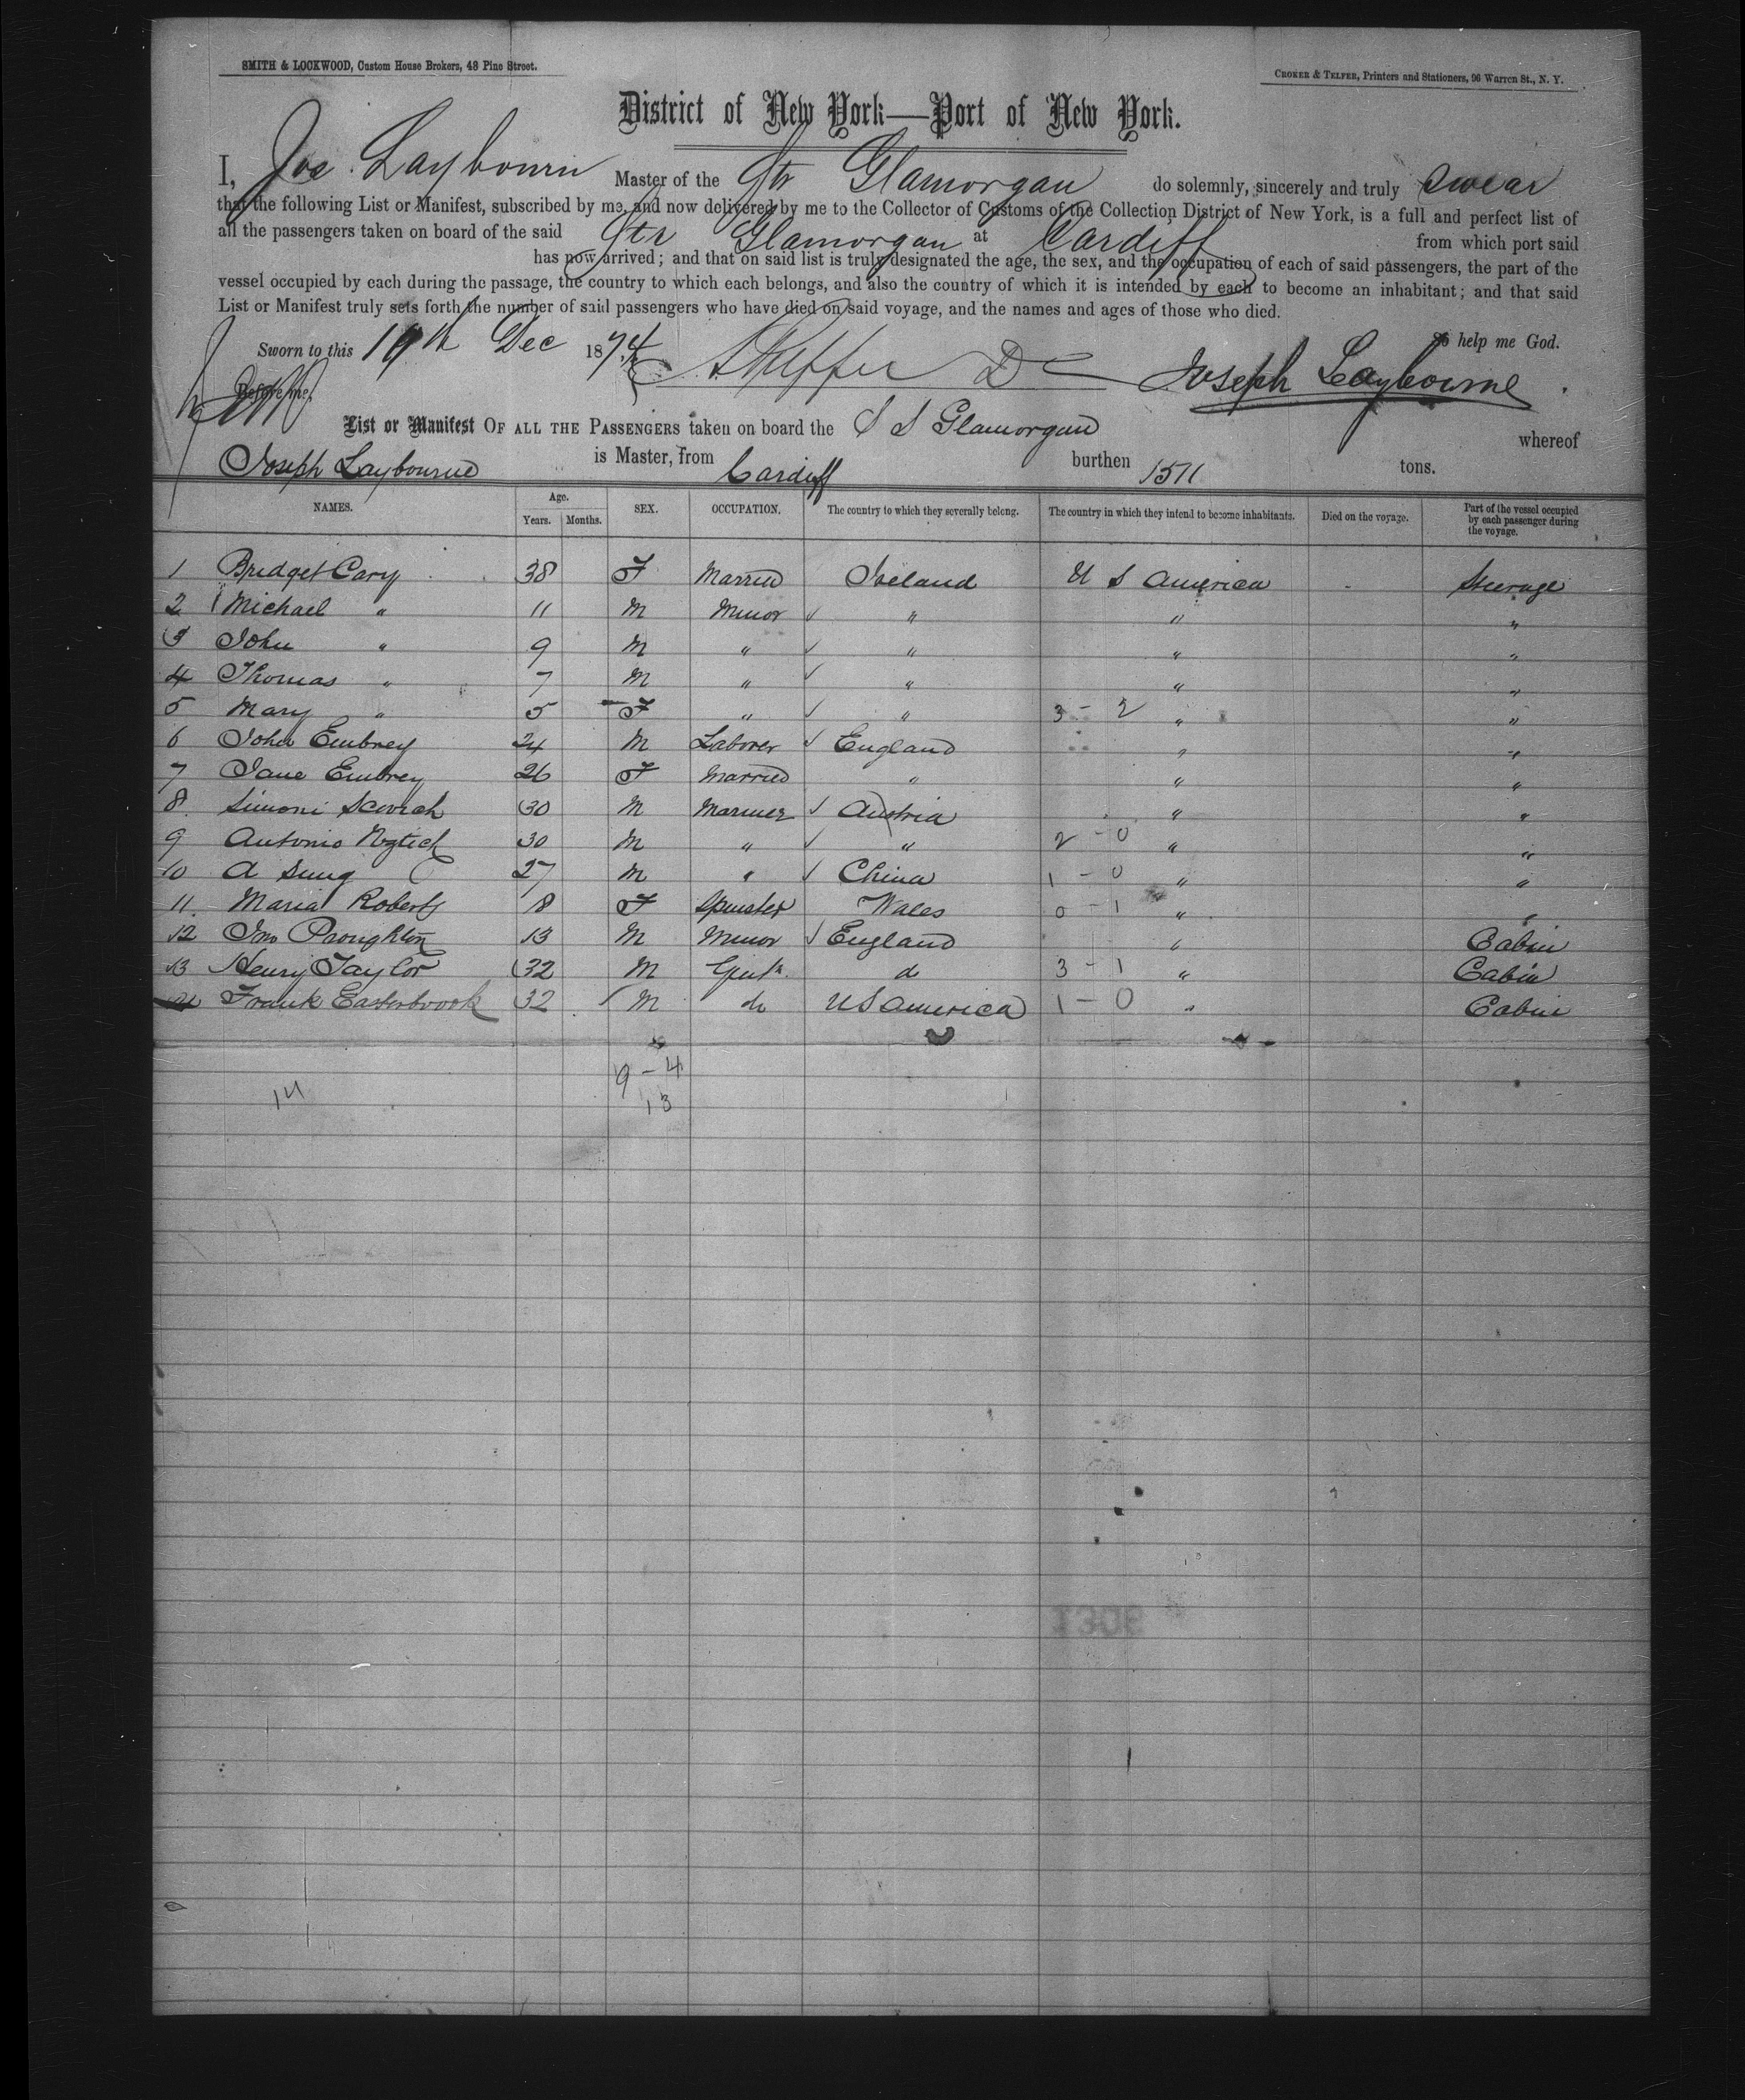 SMITH & LOCKWOOD, Custom House Brokers, 48 Pine Street.
CROKER & TELFER, Printers and Stationers, 96 Warren St., N. Y.
District of New York—Port of New York.
I, Jos Laybourn Master of the Str Glamorgan do solemnly, sincerely and truly swear
that the following List or Manifest, subscribed by me, and now delivered by me to the Collector of Customs of the Collection District of New York, is a full and perfect list of
all the passengers taken on board of the said Str Glamorgan at Cardiff from which port said
has now arrived; and that on said list is truly designated the age, the sex, and the occupation of each of said passengers, the part of the
vessel occupied by each during the passage, the country to which each belongs, and also the country of which it is intended by each to become an inhabitant; and that said
List or Manifest truly sets forth the number of said passengers who have died on said voyage, and the names and ages of those who died.
So help me God.
Sworn to this 19th Dec 1874
Joseph Laybourne
Before me,
List or Manifest OF ALL THE PASSENGERS taken on board the S S Glamorgan whereof
Joseph Laybourne is Master, from Cardiff burthen 1511 tons.
NAMES. Age. Years. Months. SEX. OCCUPATION. The country to which they severally belong. The country in which they intend to become inhabitants. Died on the voyage. Part of the vessel occupied by each passenger during the voyage.
1 Bridget Cary 38 F Married Ireland U S America Steerage
2 Michael " 11 M Minor " " "
3 John " 9 M " " " "
4 Thomas " 7 M " " " "
5 Mary " 5 F " " 3 - 2 " "
6 John Embrey 24 M Laborer England " "
7 Jane Embrey 26 F Married " " "
8 Simoni 30 M Mariner Austria " "
9 Antonio 30 M " " 2 - 0 " "
10 A Sung 27 M " China 1 - 0 " "
11 Maria Roberts 18 F Spinster Wales 0 - 1 " "
12 Jno Proughton 13 M Minor England " Cabin
13 Henry Taylor 32 M Gentn. do 3 - 1 " Cabin
Frank Easterbrook 32 M do US America 1 - 0 " Cabin
9 - 4
14
13